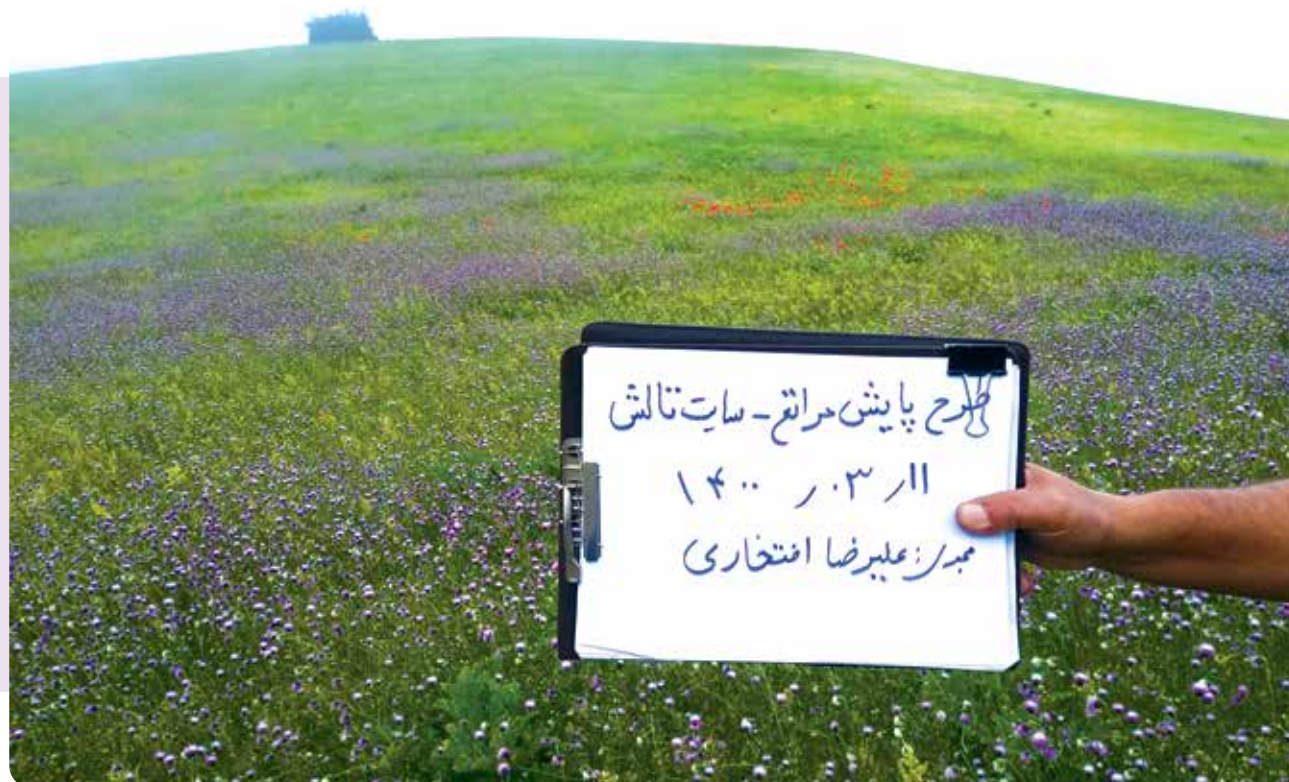 طرح پایش مراتع - سایت تالش
۱۴۰۰ ر ۰۳ ر ۱۱
مجری: علیرضا افتخاری